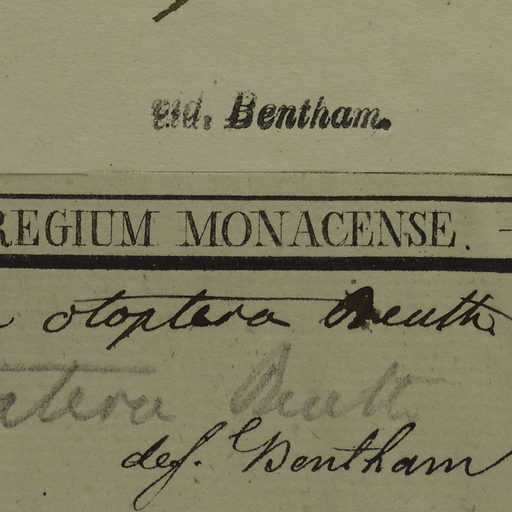 vid. Bentham.
REGIUM MONACENSE. –
otoptera Benth
Benth
def. Bentham